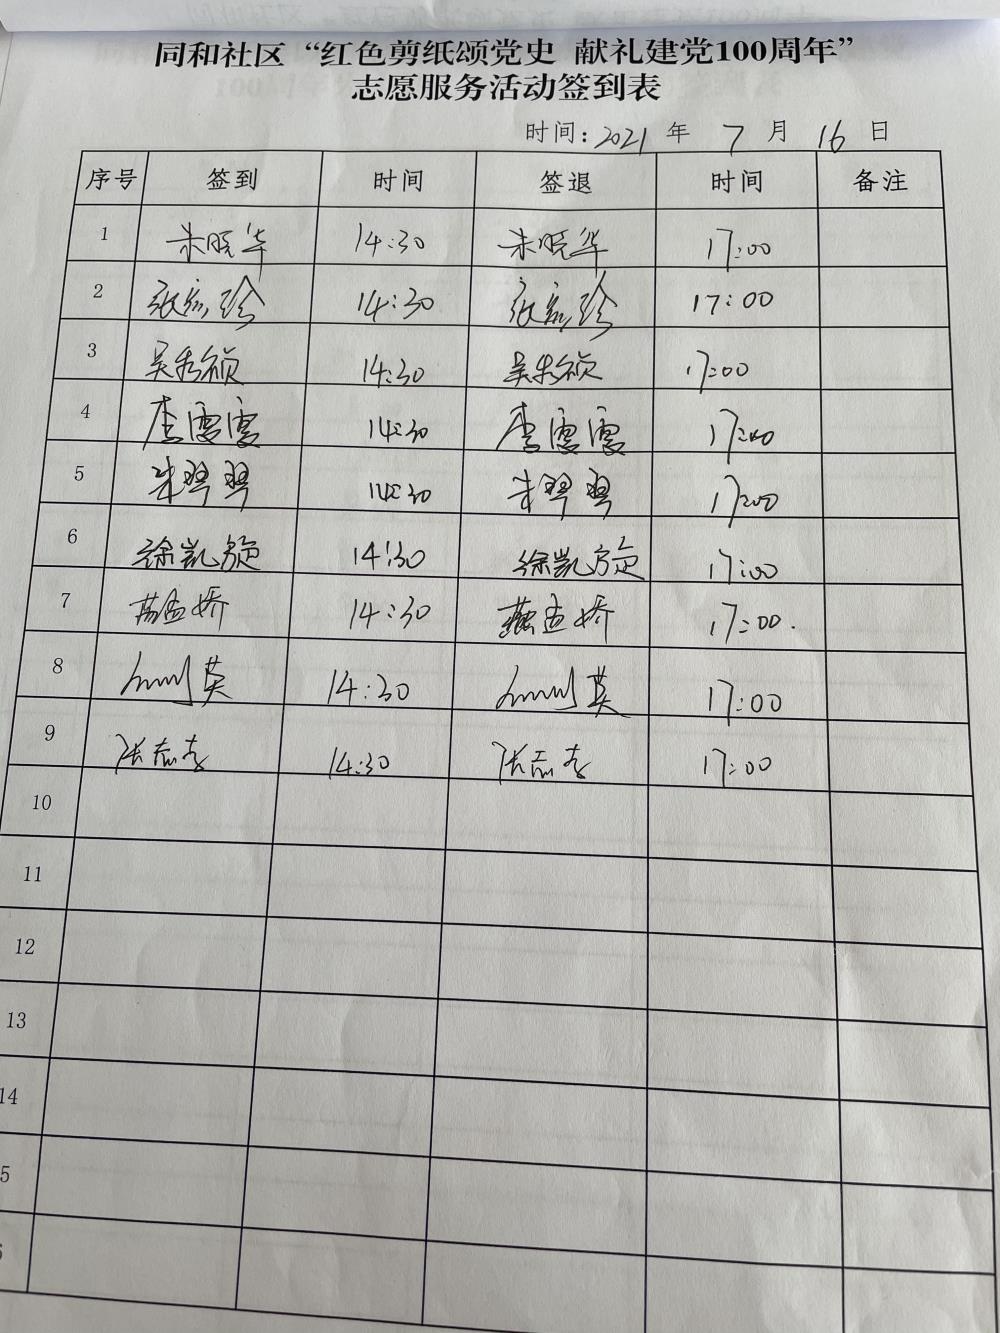 同和社区“红色剪纸颂党史 献礼建党100周年”
志愿服务活动签到表
时间：2021 年 7 月 16 日
序号 签到 时间 签退 时间 备注
1 朱晓华 14:30 朱晓华 17:00
2 14:30 17:00
3 吴秀祯 14:30 吴秀祯 17:00
4 李雯雯 14:30 李雯雯 17:00
5 朱翠翠 14:30 朱翠翠 17:00
6 徐凯旋 14:30 徐凯旋 17:00
7 14:30 17:00.
8 英 14:30 英 17:00
9 张志 14:30 张志 17:00
10
11
12
13
14
5